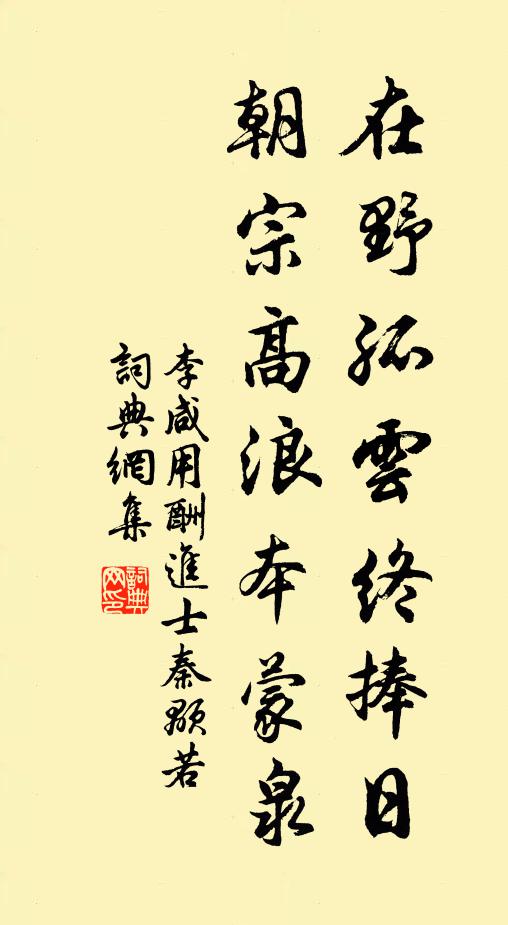 在野孤雲終捧日
朝宗高浪本蒙泉
李咸用酬進士秦顒若
詞典網集
詞典網印